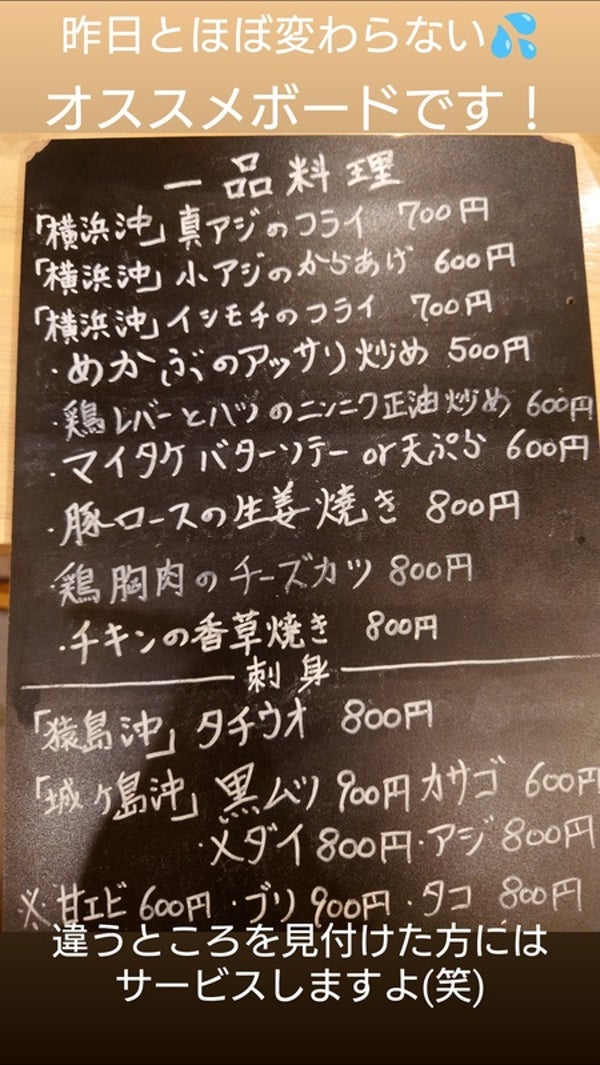 昨日とほぼ変わらない💦
オススメボードです！
一品料理
「横浜沖」真アジのフライ 700円
「横浜沖」小アジのからあげ 600円
「横浜沖」イシモチのフライ 700円
・めかぶのアッサリ炒め 500円
・鶏レバーとハツのニンニク正油炒め 600円
・マイタケバターソテーor天ぷら 600円
・豚ロースの生姜焼き 800円
・鶏胸肉のチーズカツ 800円
・チキンの香草焼き 800円
刺身
「猿島沖」タチウオ 800円
「城ヶ島沖」黒ムツ 900円 カサゴ 600円
・メダイ 800円・アジ 800円
※甘エビ 600円・ブリ 900円・タコ 800円
違うところを見付けた方には
サービスしますよ(笑)